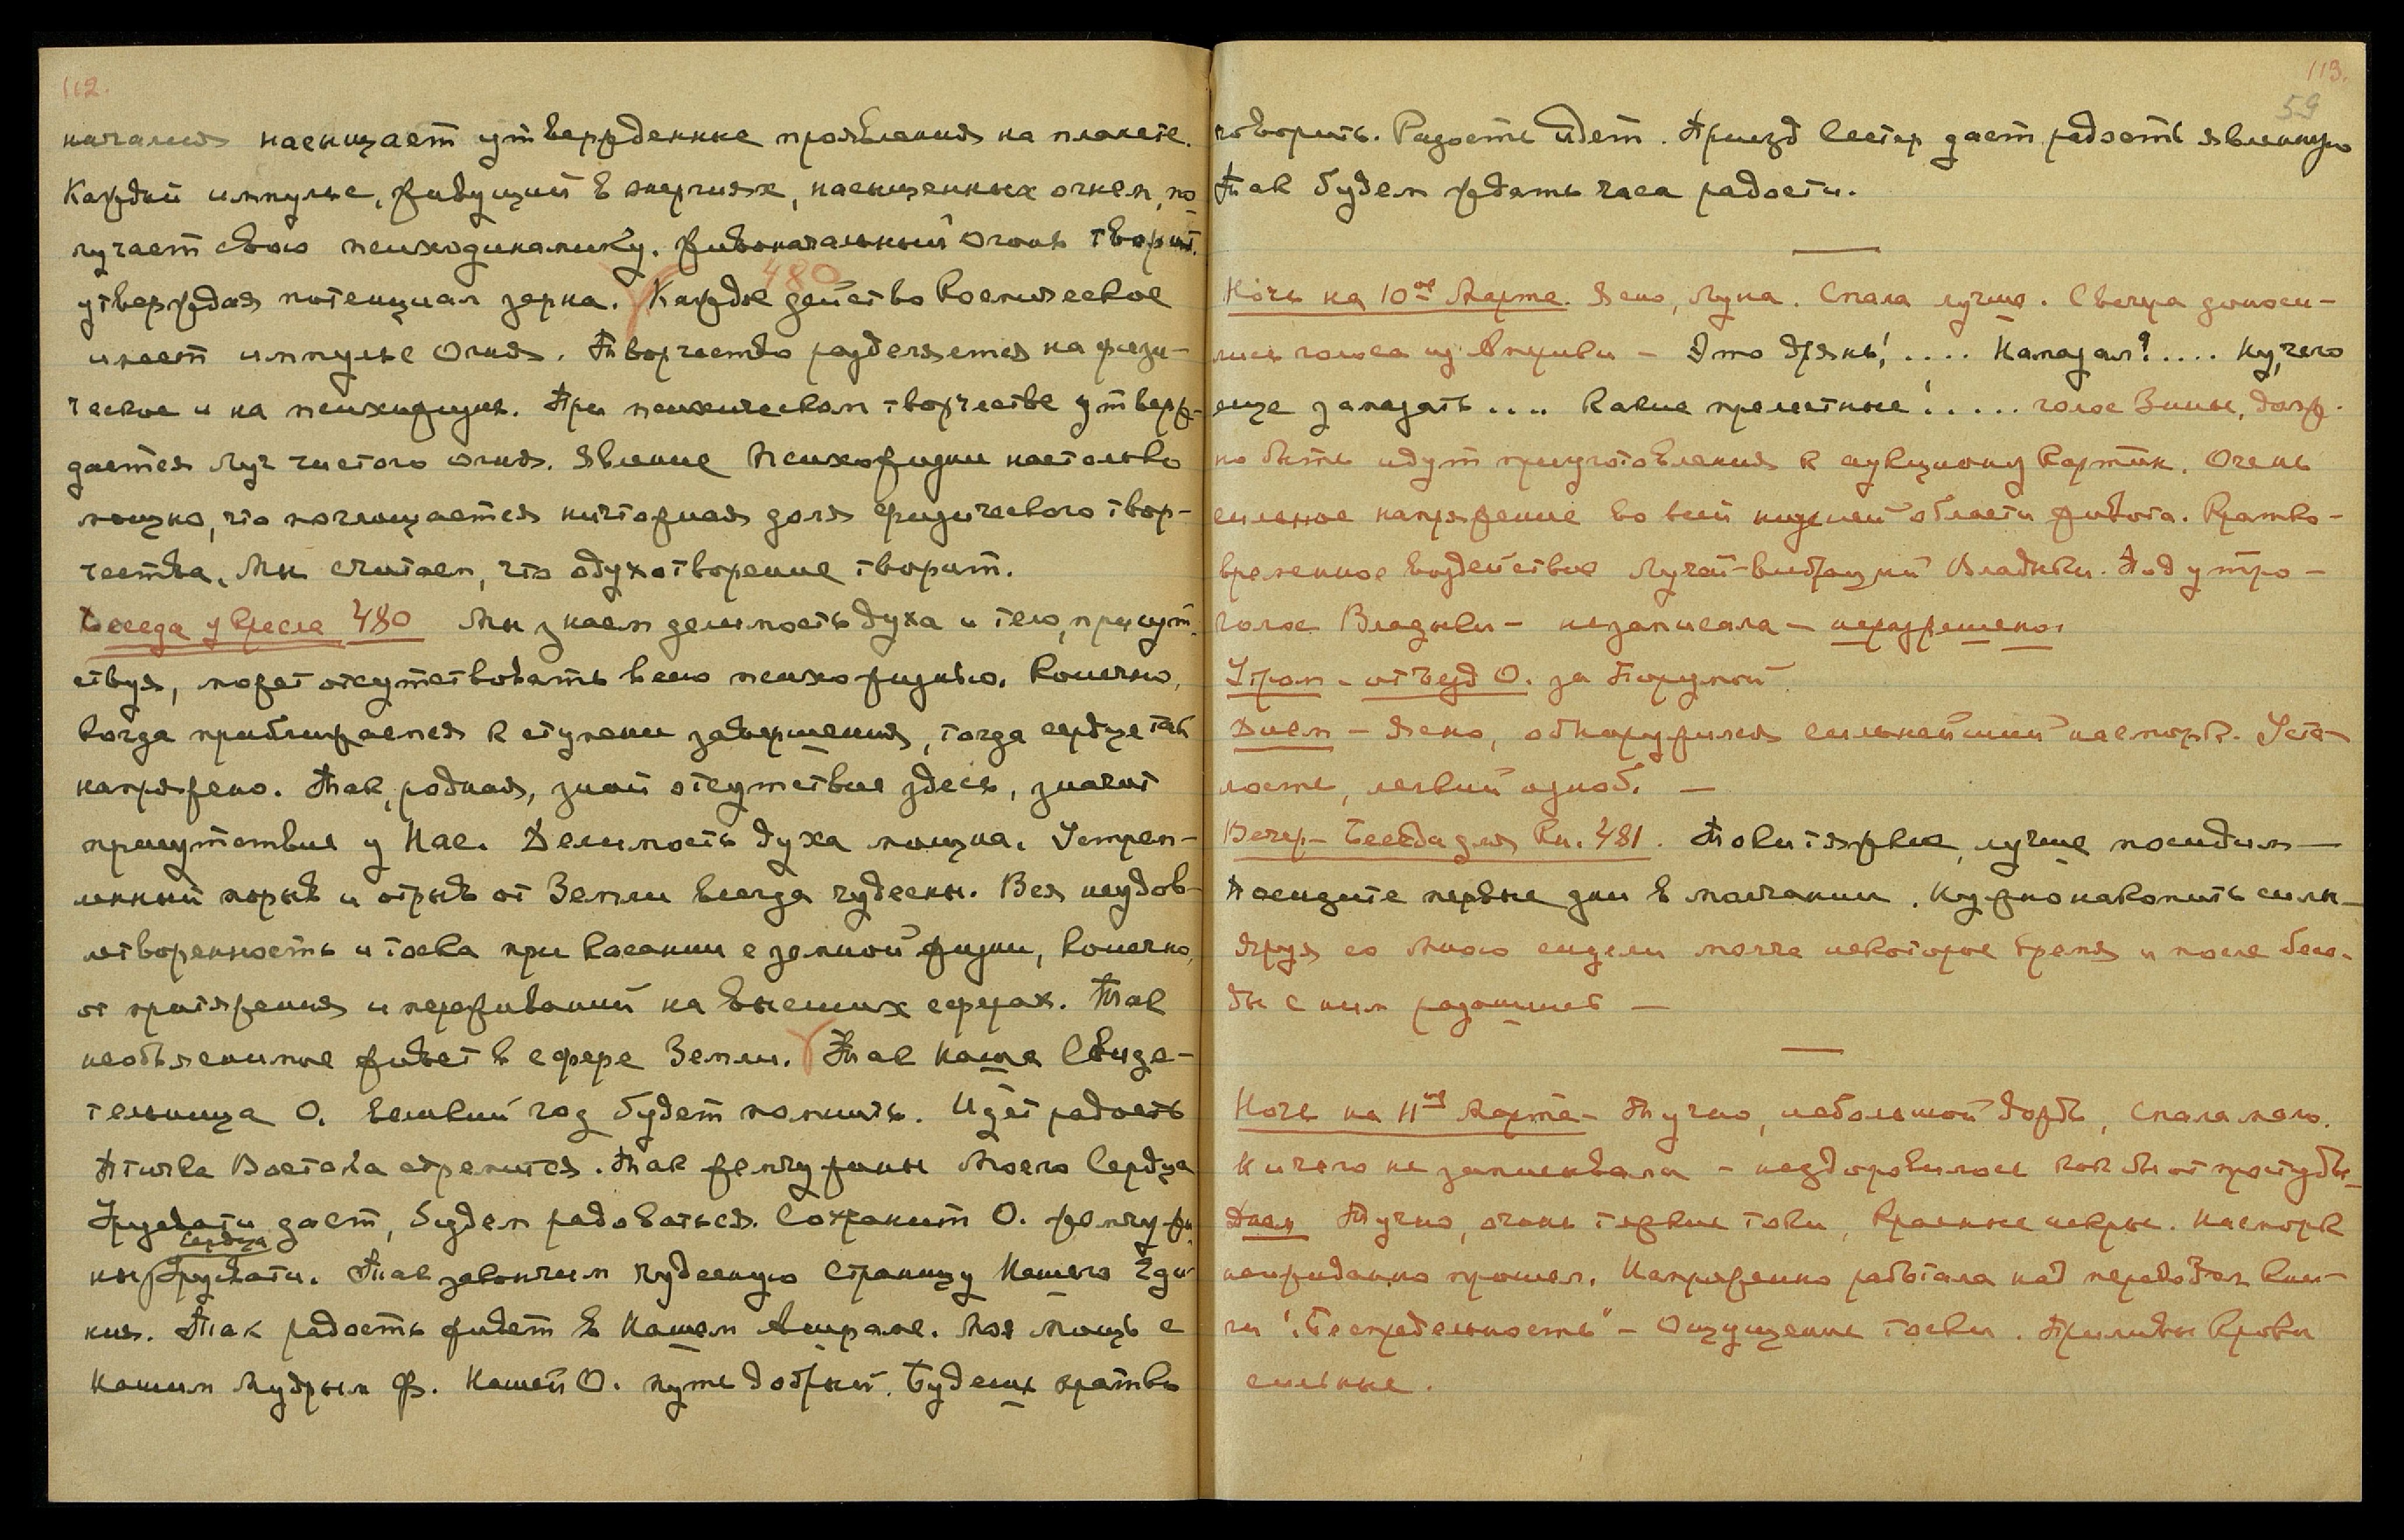 112.
начались насыщает утвержденные проявления на планете.
Каждый импульс, живущий в энергиях, насыщенных огнем, по-
лучает свою психодинамику. Живоначальный огонь творит,
480
утверждая потенциал зерна. Каждое действо космическое
имеет импульс Огня. Творчество разделяется на физи-
ческое и на психожизнь. При психическом творчестве утверж-
дается Луч чистого огня. Явление Психожизни настолько
мощно, что поглощается ничтожная доля физического твор-
чества, Мы считаем, что одухотворение творит.
Беседа у Кресла 480 Мы знаем делимость духа и тело, присут-
ствуя, может отсутствовать всею психожизнью. Конечно,
когда приближаемся к ступени завершения, тогда сердце так
напряжено. Так, родная, знай отсутствие здесь, значит
присутствие у Нас. Делимость духа мощна. Устрем-
ленный порыв и отрыв от Земли всегда чудесны. Вся неудов-
летворенность и тоска при касании с земной жизни, конечно,
от притяжения и переживаний на высших сферах. Так
необъяснимое живет в сфере Земли. Так наша Свиде-
тельница О. великий год будет помнить. Идет радость
Птичка Востока стремится. Так жемчужины Моего Сердца
Урусвати даст, будем радоваться. Сохранит О. жемчужи-
сердца
ны Урусвати. Так закончим чудесную страницу Нашего Еди-
ния. Так радость живет в Нашем Ашраме. Моя мощь с
Нашим Мудрым Ф. Нашей О. путь добрый. Будешь кратко
113.
59
говорить. Радость идет. Приезд Сестер дает радость явленную
Так будем ждать часа радости.
Ночь на 10ое Марта. Ясно, Луна. Спала лучше. Сверха доноси-
лись голоса из Америки – Это дрянь! .... Нападал? .... Ну, чего
еще западать .... Какие прелестные! ..... голос Зины, долж-
но быть идут приуготовления к аукциону картин. Очень
сильное напряжение во всей нижней области живота. Кратко-
временное воздействие Лучей-вибраций Владыки. Под утро –
голос Владыки – незаписала – неразрешено.
Утром – отъезд О. за Поруmой
Днем – Ясно, обнаружился сильнейший насморк. Уста-
лость, легкий озноб. –
Вечер – Беседа для Кн. 481. Токи тяжкие, лучше посидим –
Посидите первые дни в молчании. Нужно накопить силы –
Яруя со Мною сидели молча некоторое время и после бесе-
ды с ним разошлись –
Ночь на 11ое Марта – Тучно, небольшой дождь, спала мало.
Ничего не записывала – нездоровилось как бы от простуды –
Днем Тучно, очень тяжкие токи, красные искры. Насморк
неожиданно прошел. Напряженно работала над переводом кни-
ги "Беспредельность" – Ощущение тоски. Приливы крови
сильные.